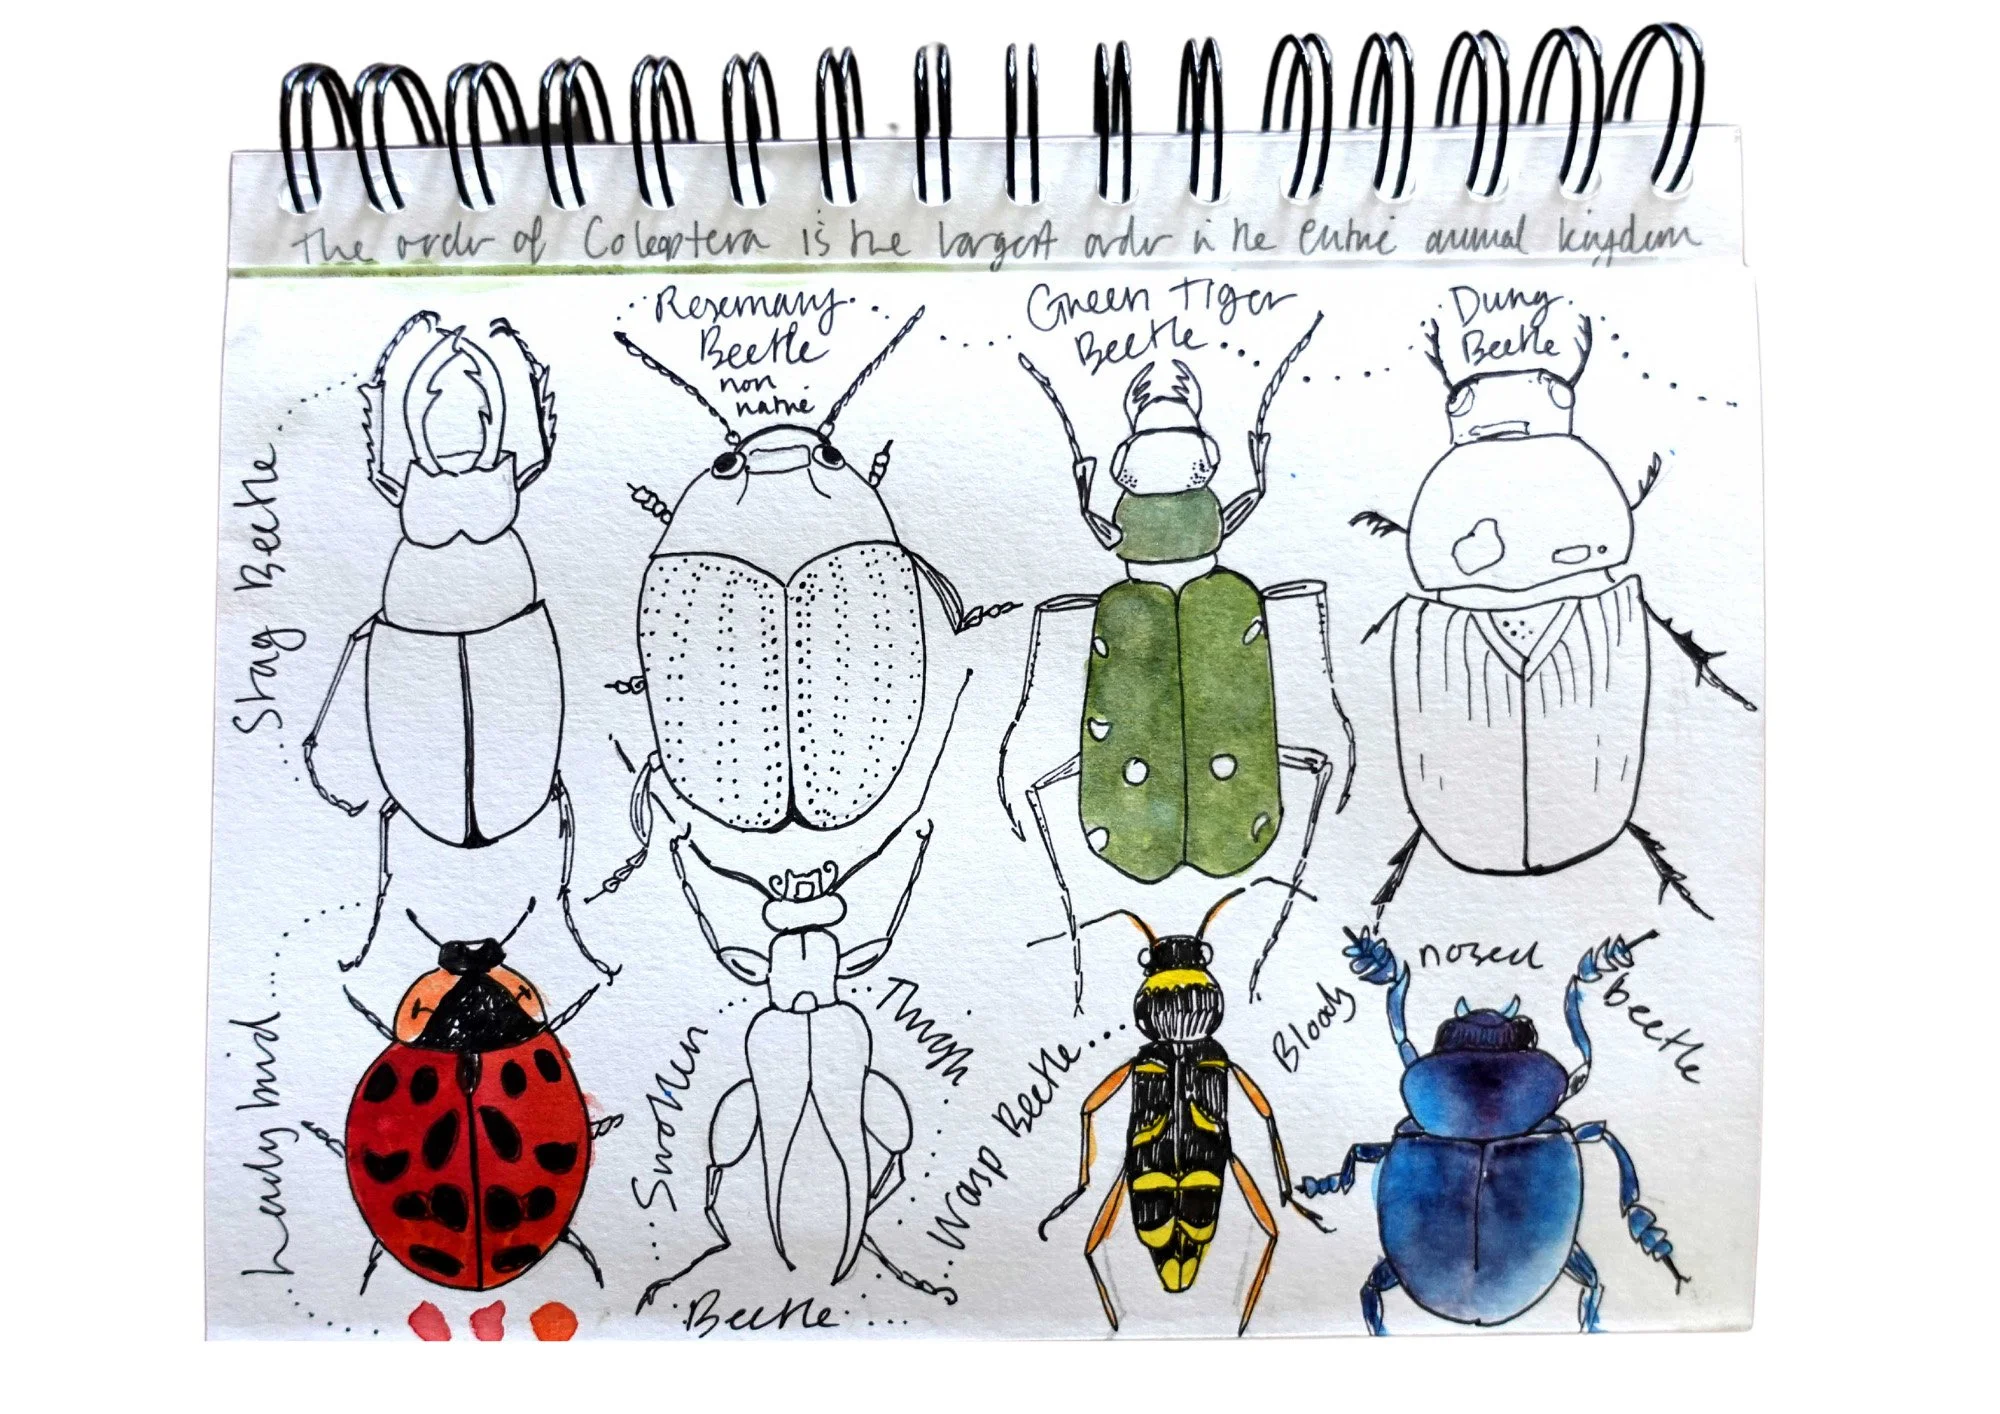 The order of Coleoptera is the largest order in the entire animal kingdom
Stag Beetle
Rosemary
Beetle
non
native
Green Tiger
Beetle
Dung
Beetle
Ladybird
Swollen
Thigh
Beetle
Wasp Beetle
Bloody
nosed
beetle